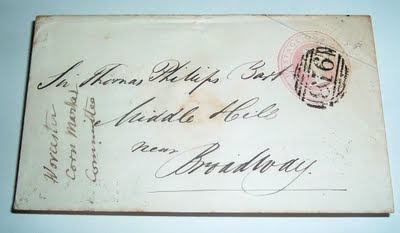 Sir Thomas Phillips Bart
Middle Hill
near
Broadway.
Worcester
Corn Market
Committee